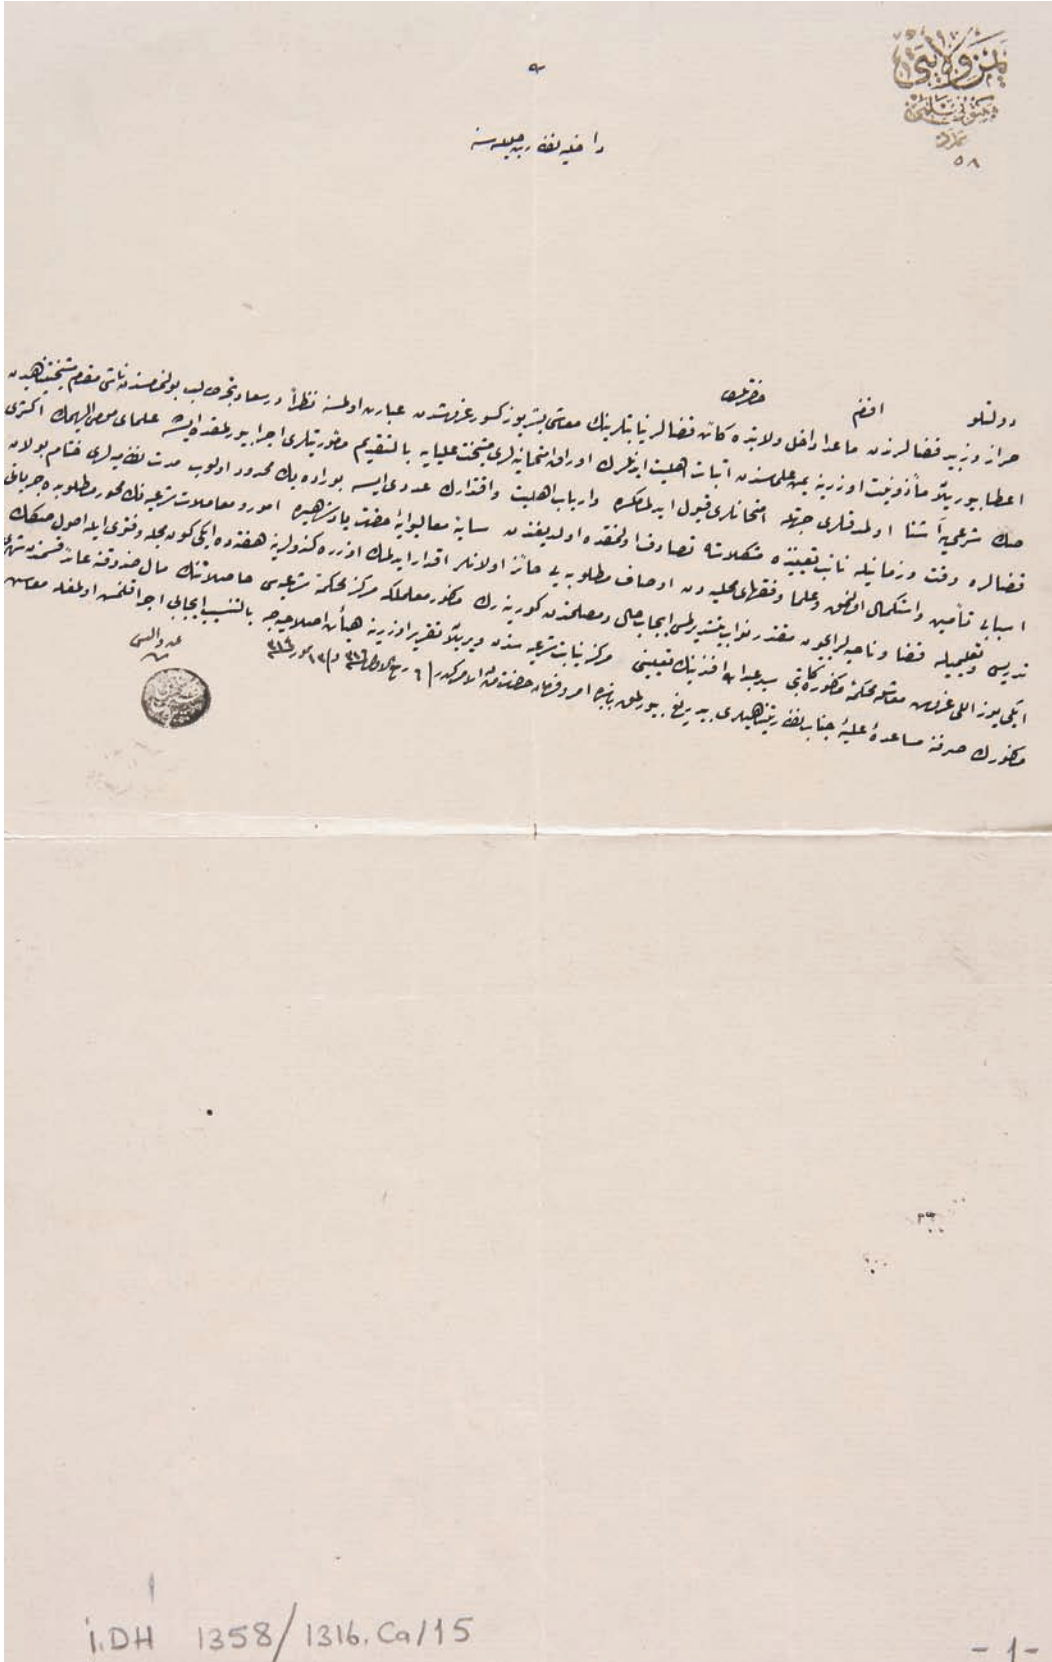 يمن ولايتى
مكتوبى قلمى
عدد
٥٨
داخليه نظارت جليله سنه
دولتلو افندم حضرتلرى
حراز وزبيد قضالرندن ماعدا داخل ولايتده كائن قضالر نيابتلرينك معاشى بشر يوز كسور غروشدن عبارت اولمسنه نظراً درسعادتجه طالب بولنمامسندن ناشى مقدم مشيختپناهيدن
اعطا بيوريلان مأذونيت اوزرينه يمن علماسندن اثبات اهليت ايدنلرك اوراق امتحانيه لرى مشيخت عليايه بالتقديم مأموريتلرى اجرا بيورلمقده ايسه ده علماى موصى اليهمك اكثرى
صك شرعى يه آشنا اولمدقلرى جهتله امتحانلرى قبول ايدلمامكده وارباب اهليت واقتدارك عددى ايسه بوراده پك محدود اولوب مدت نظاميه لرى ختام بولان
قضالره وقت وزمانيله نائب تعييننده مشكلاته تصادف اولنمقده اولديغندن سايه معاليوايه حضرت پادشاهيده امور ومعاملات شرعيه نك محور مطلوبده جريانى
اسبابى تأمين واستكمال اولنمق وعلما وفقهاى محليه دن اوصاف مطلوبه يى حائز اولانلر اقدار ايدلمك اوزره كندولرينه هفته ده ايكى كون مجله وفتوى ايله اصول صكك
تدريس وتعليميله قضا وناحيه لر ايچون مقتدر نواب يتشديرلمسى ايجاب حال ومصلحتدن كورينه رك مذكور معاملكه مركز محكمه شرعيه سى حاصلاتنك مال صندوقنه عائد قسمندن شهرى
ايكى يوز اللى غروش معاشله محكمه مذكوره كاتبى سيد عبد الله افندينك تعيينى مركز نيابت شرعيه سندن ويريلان تقرير اوزرينه هيأت اصلاحيه جه بالتنسيب ايجابى اجرا قلنمش اولمغله معاش
مذكورك صرفنه مساعده عليه جناب نظارتپناهيلرى بيدريغ بيورلمق بابنده امر وفرمان حضرت من له الامركدر
يمن واليسى
İ.DH 1358/1316.Ca/15
- 1 -